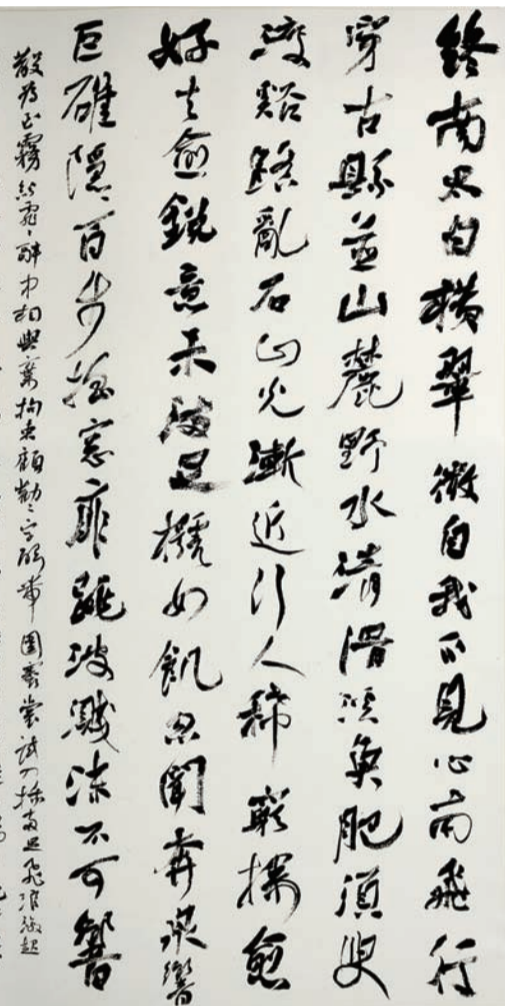 終南太白橫翠微自我不見心南飛行
穿古縣並山麓野水清滑溪魚肥須臾
渡谿踏亂石山光漸近行人稀窮探愈
好去愈銳意未滿足枵如飢忽聞奔泉響
巨碓隱隱百步搖窗扉跳波濺沫不可響
散為白霧紛霏霏醉中相與棄拘束顧勸二子解帶圍褰裳試入插兩足飛浪激起